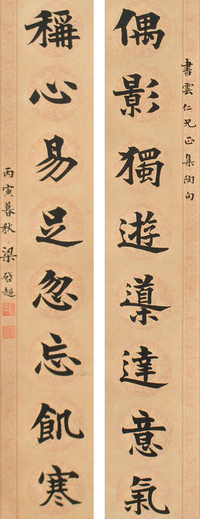 書雲仁兄正集陶句
偶影獨遊導達意氣
稱心易足忽忘飢寒
丙寅暮秋梁啟超